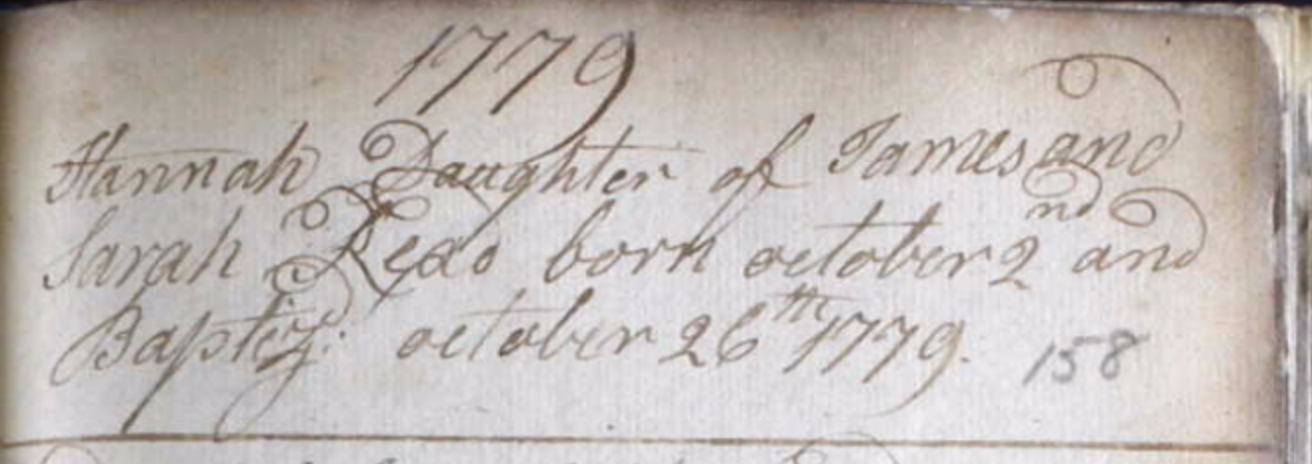 1779
Hannah Daughter of James and
Sarah Read born october 2nd and
Baptiz: october 26th 1779. 158